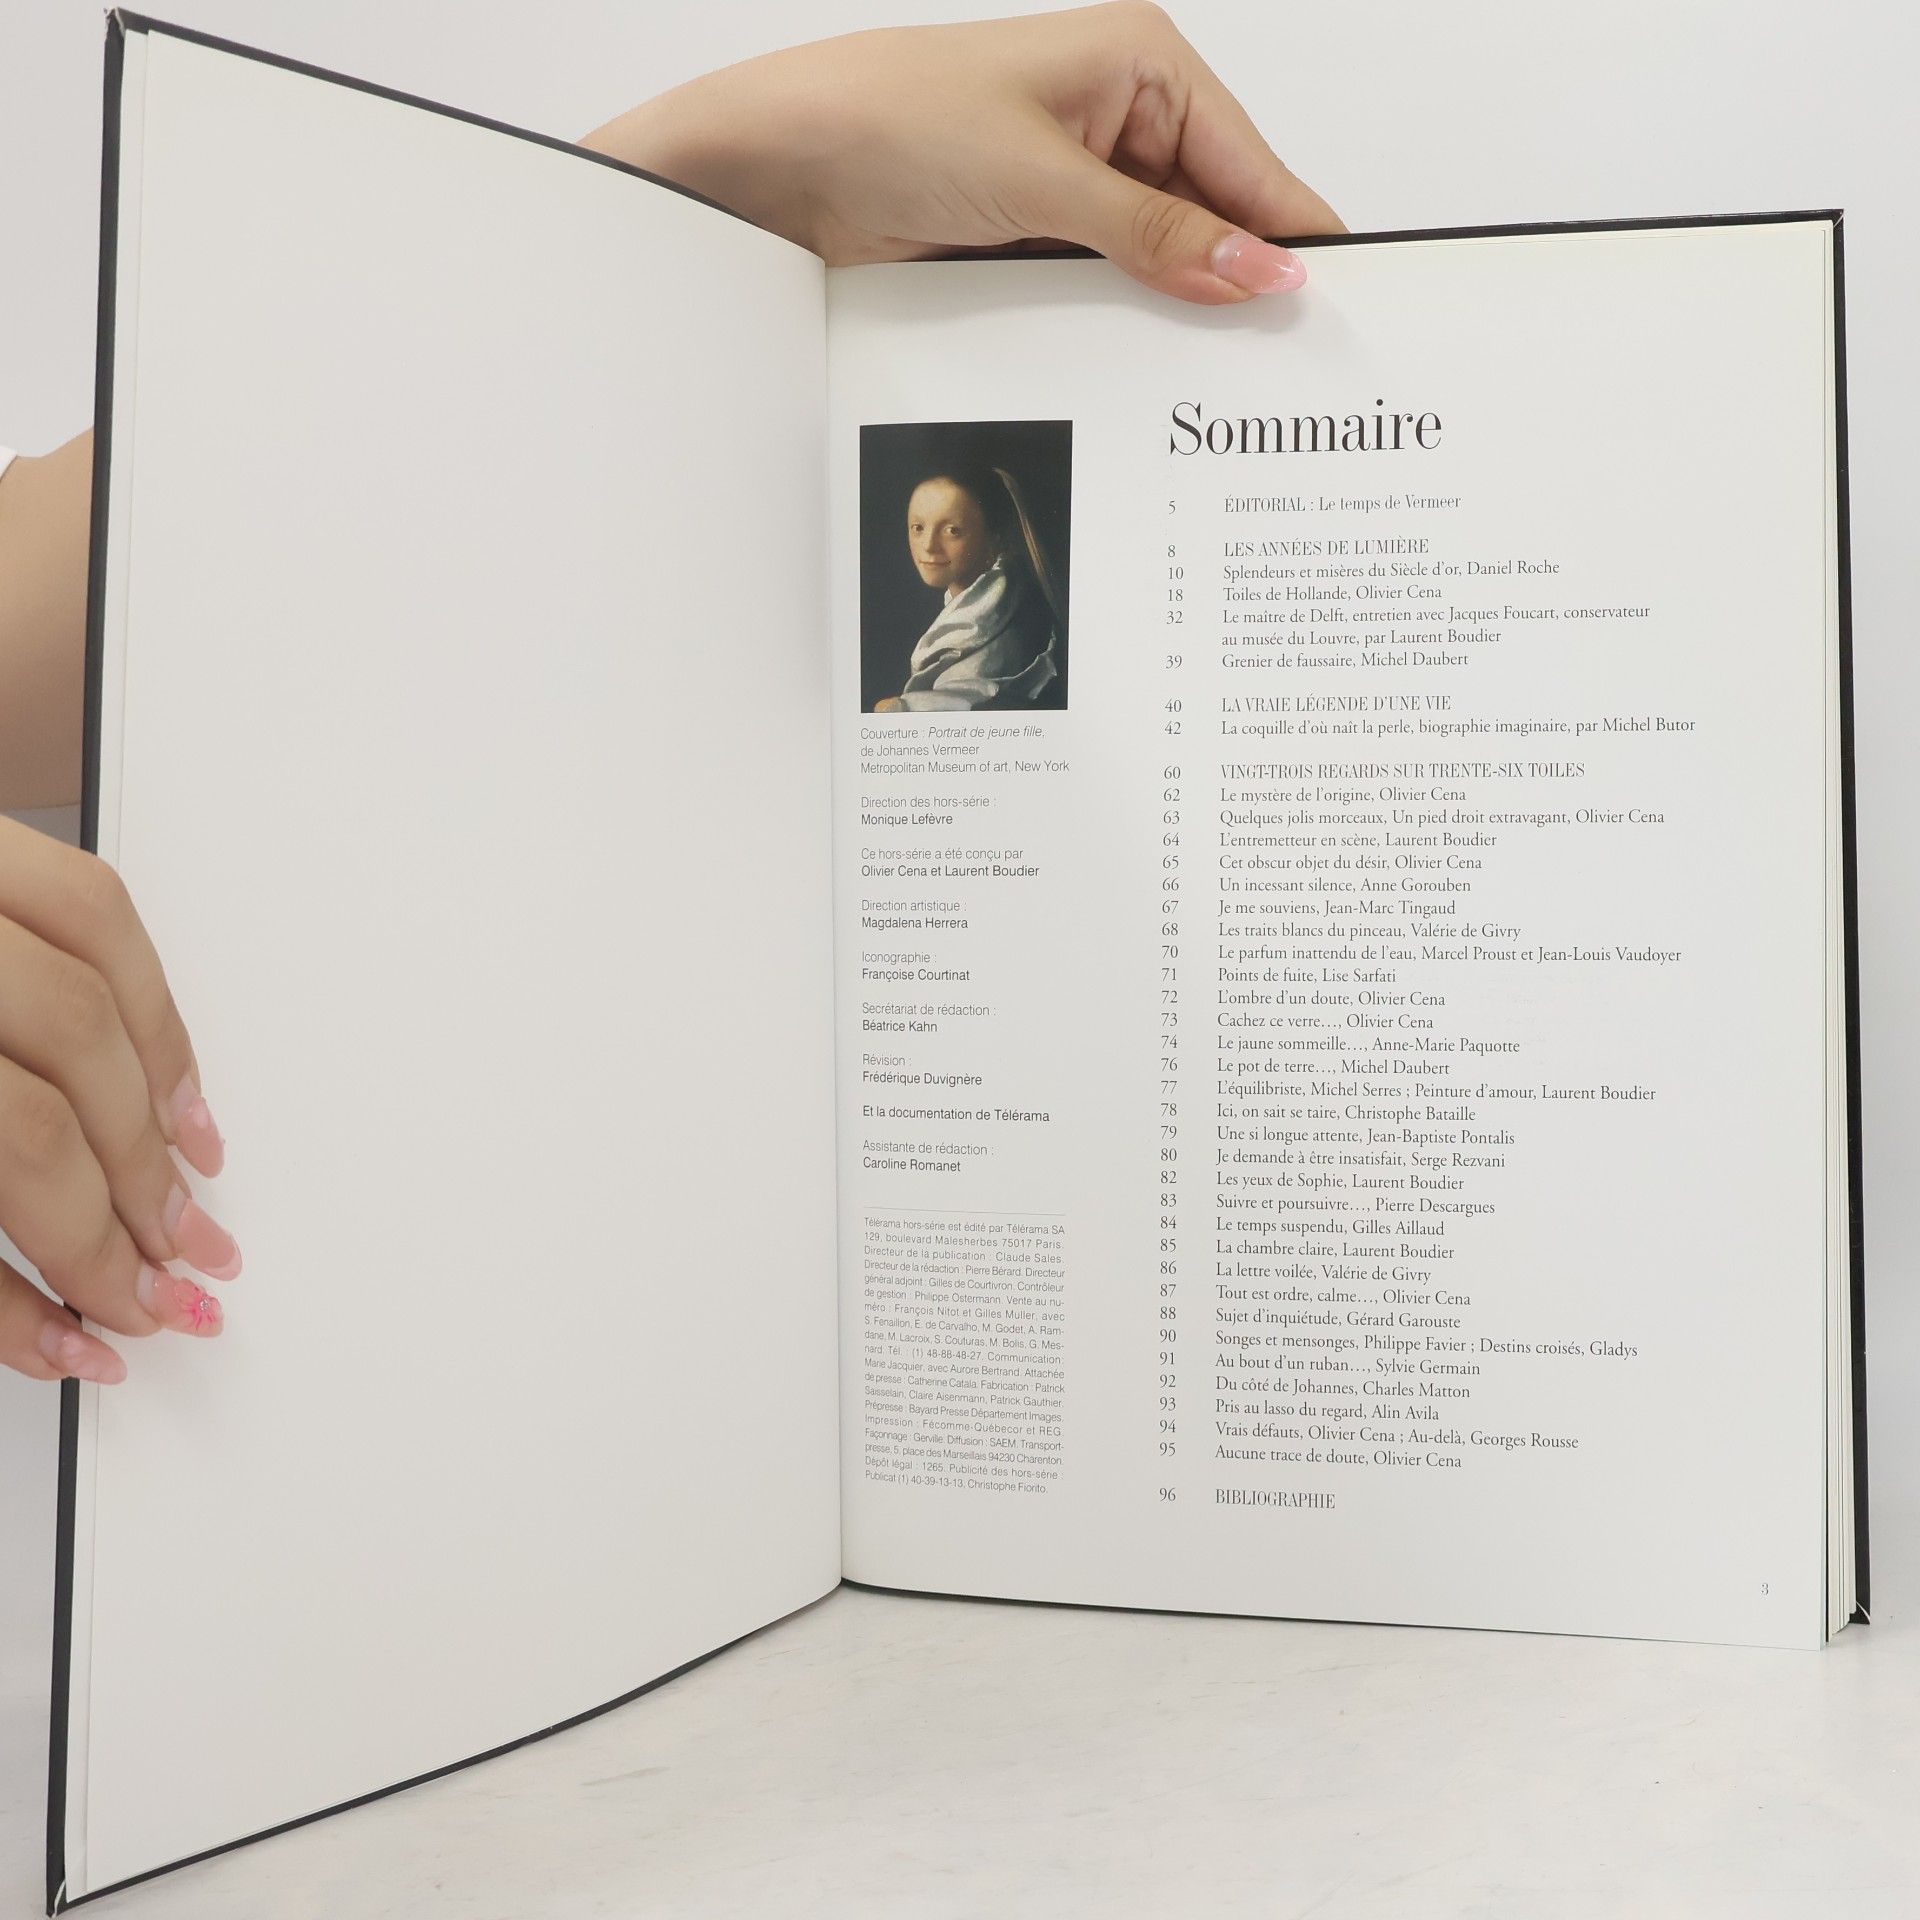 Couverture : Portrait de jeune fille,
de Johannes Vermeer
Metropolitan Museum of art, New York
Direction des hors-série :
Monique Lefèvre
Ce hors-série a été conçu par
Olivier Cena et Laurent Boudier
Direction artistique :
Magdalena Herrera
Iconographie :
Françoise Courtinat
Secrétariat de rédaction :
Béatrice Kahn
Révision :
Frédérique Duvignère
Et la documentation de Télérama
Assistante de rédaction :
Caroline Romanet
Télérama hors-série est édité par Télérama SA
129, boulevard Malesherbes 75017 Paris.
Directeur de la publication : Claude Sales.
Directeur de la rédaction : Pierre Bérard. Directeur
général adjoint : Gilles de Courtivron. Contrôleur
de gestion : Philippe Ostermann. Vente au nu-
méro : François Nitot et Gilles Muller, avec
S. Fenaillon, E. de Carvalho, M. Godet, A. Ram-
dane, M. Lacroix, S. Couturas, M. Bolis, G. Mes-
nard. Tél. : (1) 48-88-48-27. Communication :
Marie Jacquier, avec Aurore Bertrand. Attachée
de presse : Catherine Catala. Fabrication : Patrick
Saisselain, Claire Aisenmann, Patrick Gauthier.
Prépresse : Bayard Presse Département Images.
Impression : Fécomme-Québecor et REG.
Façonnage : Gerville. Diffusion : SAEM, Transport-
presse, 5, place des Marseillais 94230 Charenton.
Dépôt légal : 1265. Publicité des hors-série :
Publicat (1) 40-39-13-13, Christophe Fiorito.
Sommaire
5 ÉDITORIAL : Le temps de Vermeer
8 LES ANNÉES DE LUMIÈRE
10 Splendeurs et misères du Siècle d'or, Daniel Roche
18 Toiles de Hollande, Olivier Cena
32 Le maître de Delft, entretien avec Jacques Foucart, conservateur
au musée du Louvre, par Laurent Boudier
39 Grenier de faussaire, Michel Daubert
40 LA VRAIE LÉGENDE D'UNE VIE
42 La coquille d'où naît la perle, biographie imaginaire, par Michel Butor
60 VINGT-TROIS REGARDS SUR TRENTE-SIX TOILES
62 Le mystère de l'origine, Olivier Cena
63 Quelques jolis morceaux, Un pied droit extravagant, Olivier Cena
64 L'entremetteur en scène, Laurent Boudier
65 Cet obscur objet du désir, Olivier Cena
66 Un incessant silence, Anne Gorouben
67 Je me souviens, Jean-Marc Tingaud
68 Les traits blancs du pinceau, Valérie de Givry
70 Le parfum inattendu de l'eau, Marcel Proust et Jean-Louis Vaudoyer
71 Points de fuite, Lise Sarfati
72 L'ombre d'un doute, Olivier Cena
73 Cachez ce verre…, Olivier Cena
74 Le jaune sommeille…, Anne-Marie Paquotte
76 Le pot de terre…, Michel Daubert
77 L'équilibriste, Michel Serres ; Peinture d'amour, Laurent Boudier
78 Ici, on sait se taire, Christophe Bataille
79 Une si longue attente, Jean-Baptiste Pontalis
80 Je demande à être insatisfait, Serge Rezvani
82 Les yeux de Sophie, Laurent Boudier
83 Suivre et poursuivre…, Pierre Descargues
84 Le temps suspendu, Gilles Aillaud
85 La chambre claire, Laurent Boudier
86 La lettre voilée, Valérie de Givry
87 Tout est ordre, calme…, Olivier Cena
88 Sujet d'inquiétude, Gérard Garouste
90 Songes et mensonges, Philippe Favier ; Destins croisés, Gladys
91 Au bout d'un ruban…, Sylvie Germain
92 Du côté de Johannes, Charles Matton
93 Pris au lasso du regard, Alin Avila
94 Vrais défauts, Olivier Cena ; Au-delà, Georges Rousse
95 Aucune trace de doute, Olivier Cena
96 BIBLIOGRAPHIE
3